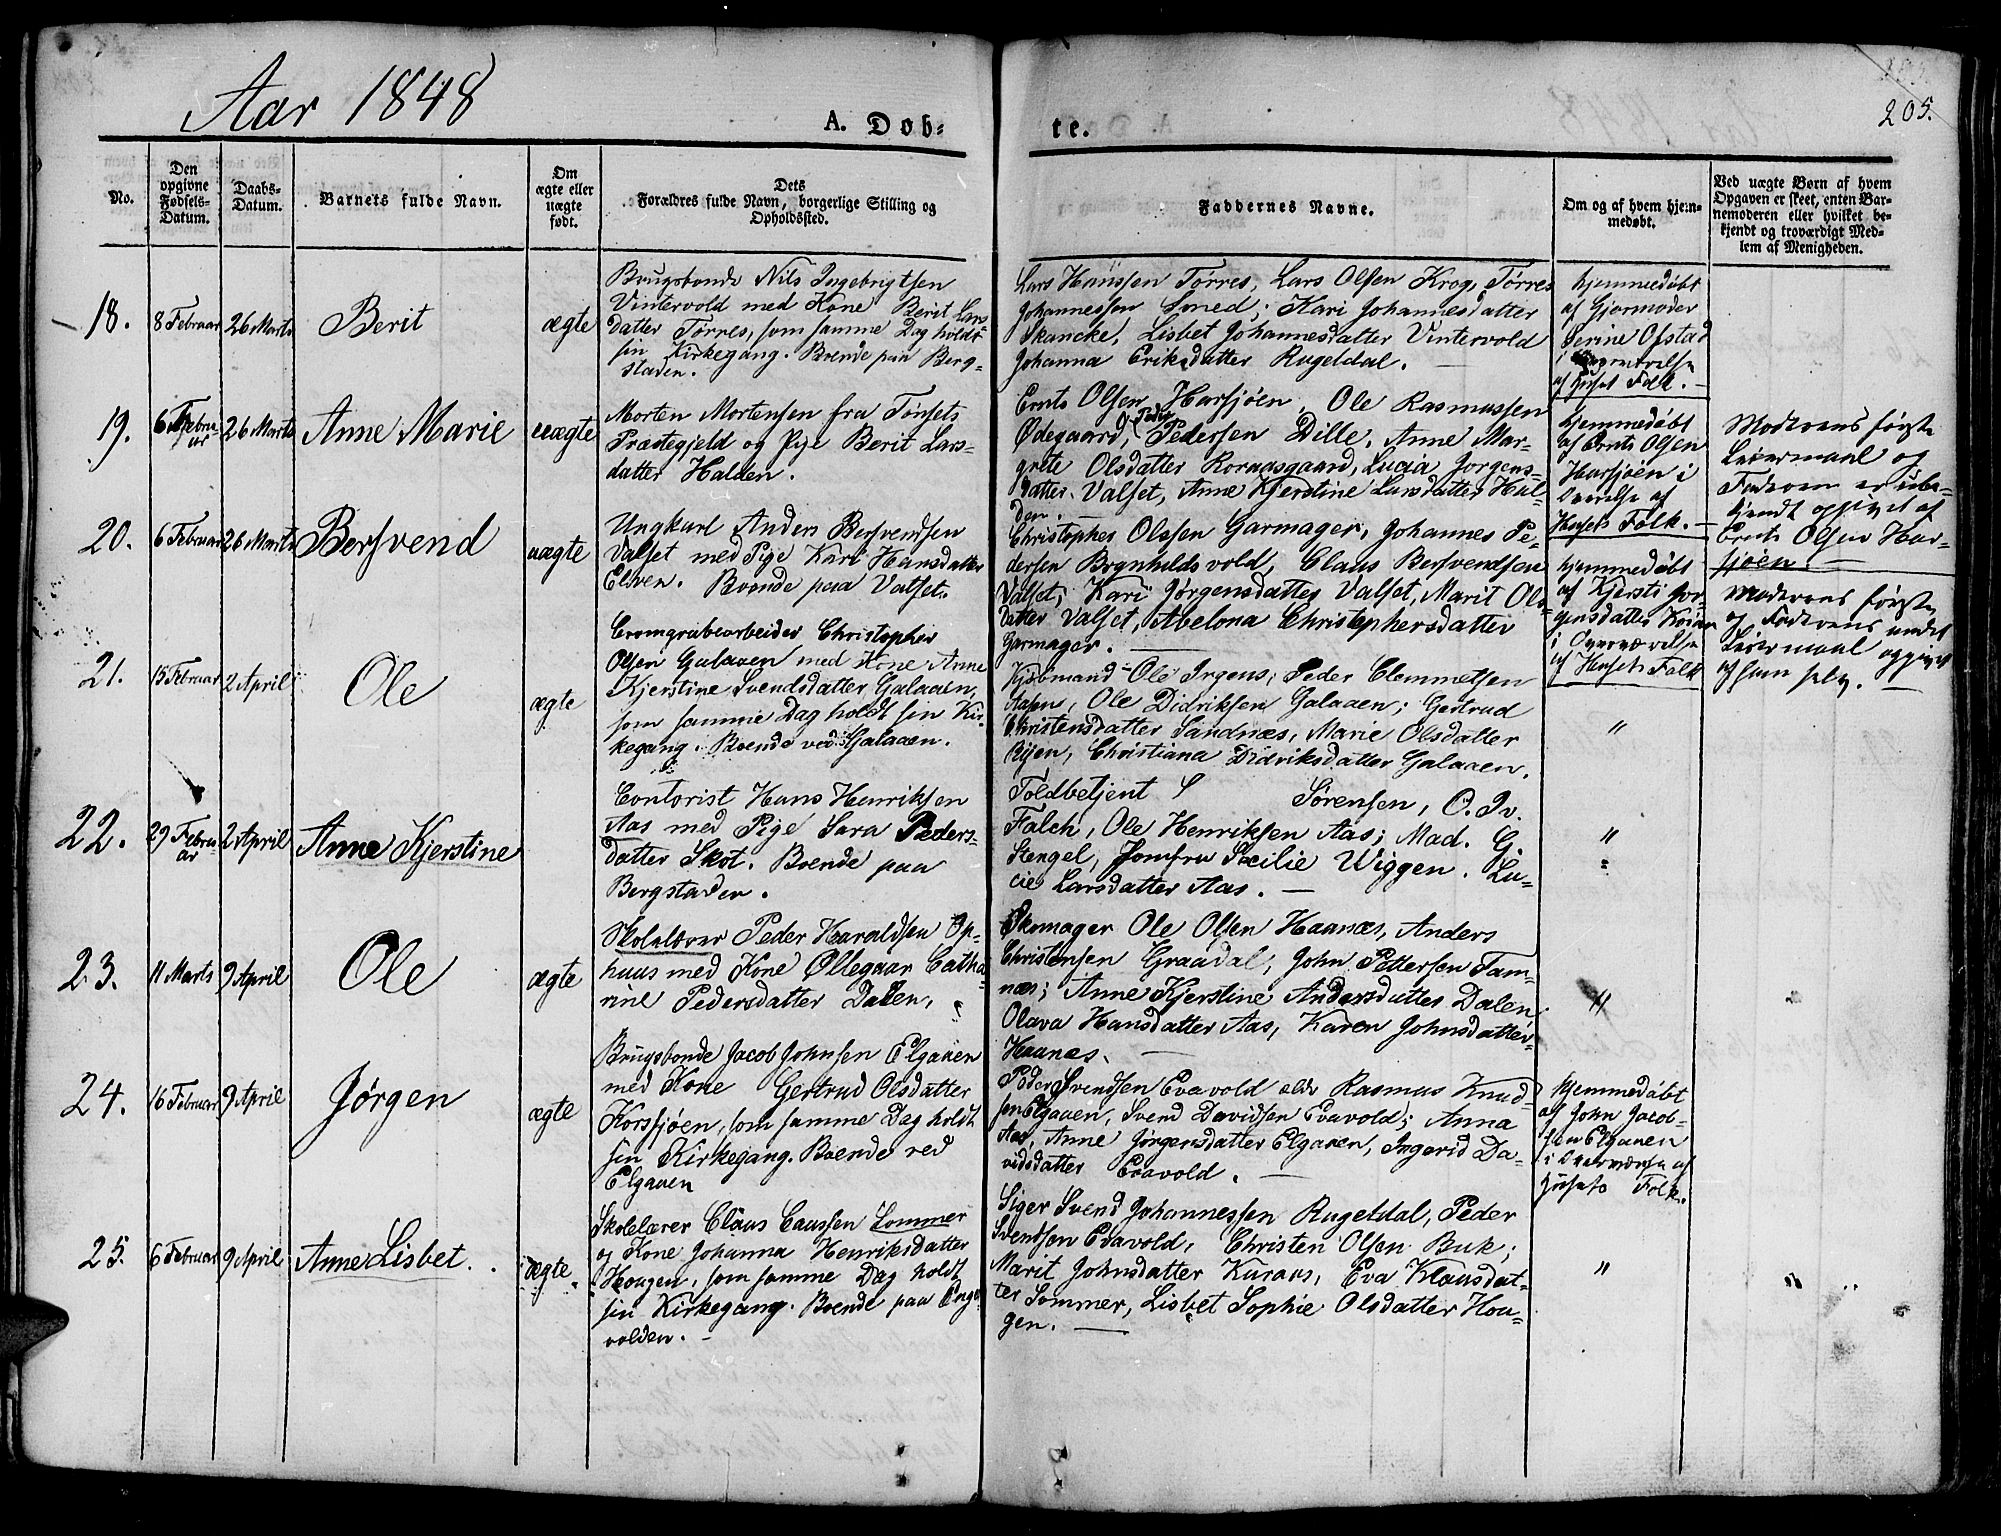 Aar 1848
A. Døb-
te.
205.
No.
Den
opgivne
Fødsels-
Datum.
Daabs-
Datum.
Barnets fulde Navn.
Om
ægte eller
uægte
født.
Dets
Forældres fulde Navn, borgerlige Stilling og
Opholdssted.
Faddernes Navne.
Om og af hvem hjem-
medøbt.
Ved uægte Børn af hvem
Opgaven er skeet, enten Bar-
nemoderen eller hvilket be-
kjendt og troværdigt Med-
lem af Menigheden.
18.
8 Februar
26 Marts
Berit
ægte
Brugsbonde Nils Ingebrigtsen
Vintervold med Kone Berit Lars
datter Tørres, som samme Dag holdt
sin Kirkegang. Boende paa Berg-
staden.
Lars Hanssen Tørres, Lars Olsen Krog, Tørres
Johannessen Smed; Kari Johannesdatter
Skancke, Lisbet Johannesdatter Vintervold
Johanna Eriksdatter Rugeldal. —
hjemmedøbt
af Gjormoder
Serine Ofstad
i Overværelse
af Huset Folk. —
19.
6 Febru-
ar
26 Marts
Anne Marie
uægte
Morten Mortensen fra Tønsets
Præstegjeld og Pige Berit Lars-
datter Halden.
Ernts Olsen Harsjøen, Ole Rasmussen
Ødegaard, Peder Pedersen Dille, Anne Mar-
grete Olsdatter Kornasgaard, Lucia Jørgens-
datter Valset, Anne Kjerstine Larsdatter Hal-
den. —
hjemmedøbt
af Ernts Olsen
Harsjøen i
Overelse af
Husets Folk. —
Moderens første
Leiermaal og
Faderen er ube-
kjendt opgivet af
Ernts Olsen Har-
sjøen. —
20.
6 Februar
26 Marts
Bersvend
uægte
Ungkarl Anders Bersvendsen
Valset med Pige Kari Hansdatter
Elven. Boende paa Valset.
Christopher Olssen Garmager, Johannes Pe-
dersen Brynhildsvold, Claus Bersvendsen
Valset, Kari Jørgensdatter Valset, Marit Ols-
datter Valset, Abelona Christophersdatter
Garmager. —
hjemmedøbt
af Kjersti Jør-
gensdatter Koien
i Overværelse
af Husets Folk
Moderens første
og Faderens andet
Leiermaal opgivet
af ham selv. —
21.
15 Februar
2 April
Ole
ægte
Cromgrubearbeider Christopher
Olsen Galaaen med Kone Anne
Kjerstine Svendsdatter Galaaen,
som samme Dag holdt sin Kir-
kegang. Boende ved Galaaen.
Kjøbmand Ole Irgens, Peder Clemmetsen
Aasen, Ole Didriksen Galaaen; Gertrud
Christensdatter Sandnæs, Marie Olsdatter
Rijen, Christiana Didriksdatter Galaaen.
"
22.
29 Febru-
ar
2 April
Anne Kjerstine
Contorist Hans Henriksen
Aas med Pige Sara Peders-
datter Skot. Boende paa
Bergstaden.
Toldbetjent S Sørensen, O. Iv.
Falch, Ole Henriksen Aas; Mad. G.
Stengel, Jomfru Sæcilie Wiggen. Lu-
cie Larsdatter Aas. —
"
23.
11 Marts
9 April
Ole
ægte
Skolelærer Peder Haraldsen Op-
huus med Kone Øllegaar Catha-
rine Pedersdatter Dalen,
Skomager Ole Olsen Haanæs, Anders
Christensen Graadal, John Pettersen Tam-
næs; Anne Kjerstine Andersdatter Dalen
Olava Hansdatter Aas, Karen Johnsdatter
Haanæs. —
"
24.
16 Februar
9 April
Jørgen
ægte
Brugsbonde Jacob Johnsen Elgaaen
med Kone Gertrud Olsdatter
Korssjøen, som samme Dag holdt
sin Kirkegang. Boende ved
Elgaaen
Peder Svendsen Evavold eldr Rasmus Knud-
sen Elgaaen, Svend Davidsen Evavold; Anna
Aas, Anne Jørgensdatter Elgaaen, Ingerid Da-
vidsdatter Evavold. —
hjemmedøbt
af John Jacob-
sen Elgaaen
i Overværelse af
Husets Folk.
25.
6 Februar
9 April
Anne Lisbet.
ægte
Skolelærer Claus Caussen Sommer
og Kone Johanna Henriksdatter
Hougen, som samme Dag holdt
sin Kirkegang. Boende paa Enge-
volden. —
Siger Svend Johannessen Rugeldal, Peder
Svendsen Evavold, Christen Olsen Buk;
Marit Johnsdatter Kuraas, Eva Klausdat-
ter Sommer, Lisbet Sophie Olsdatter Hou-
gen. —
"